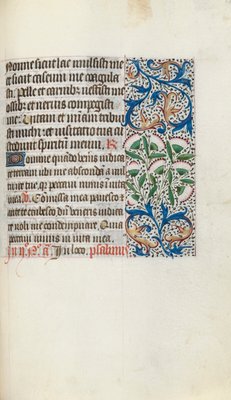 Nonne sicut lac mulsisti me
et sicut caseum me coagula
sti. Pelle et carnibz vestisti me
ossibz et nervis compegisti
me. Vitam et miam tribui
sti michi: et visitatio tua cu
stodivit spiritū meum. R
Domine quādo veneris iudica
re terram ubi me abscondā a vul
tu ire tue, quia peccavi nimis ī vita
mea. Comissa mea pavesco et
ante te erubesco dū veneris iudica
re noli me condempnare. Quia
peccavi nimis in vita mea.
In loco. psalmus